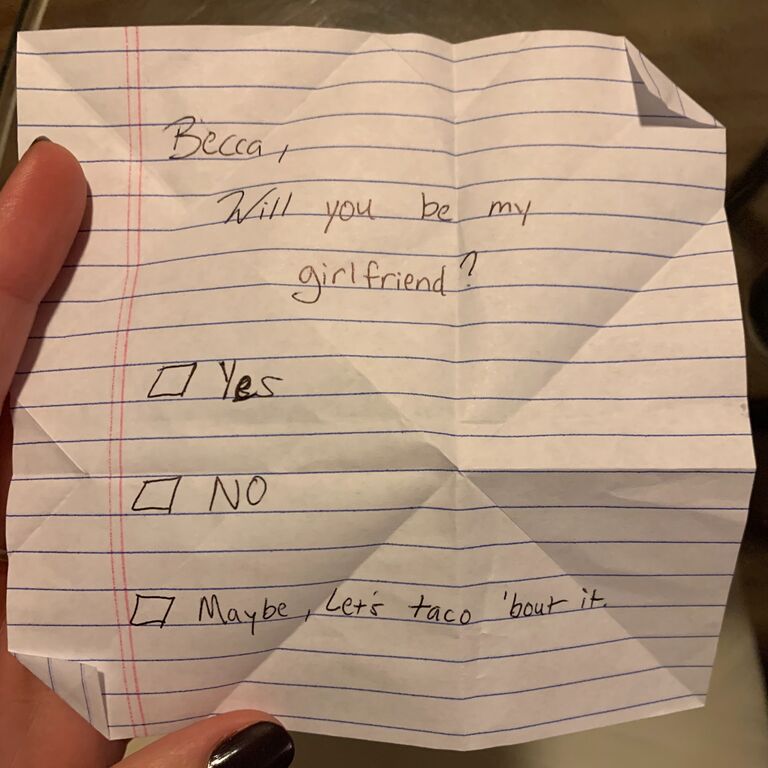 Becca,
Will you be my
girlfriend?
Yes
NO
Maybe, Let's taco 'bout it.